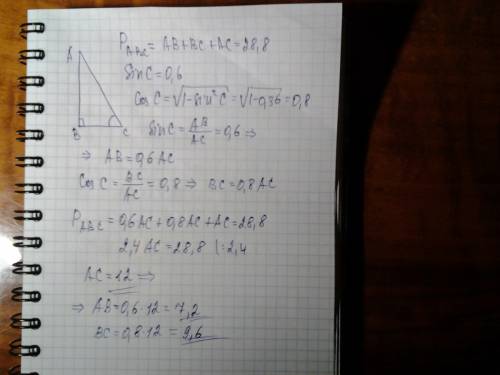 P_ABC = AB+BC+AC=28,8
sin C=0,6
cos C=√(1-sin²C)=√(1-0,36)=0,8
A
B
C
sin C = AB/AC = 0,6 ⇒
⇒ AB=0,6 AC
cos C = BC/AC = 0,8 ⇒ BC=0,8 AC
P_ABC = 0,6AC+0,8AC+AC=28,8
2,4 AC=28,8 |:2,4
AC=12 ⇒
⇒ AB=0,6·12=7,2
BC=0,8·12=9,6